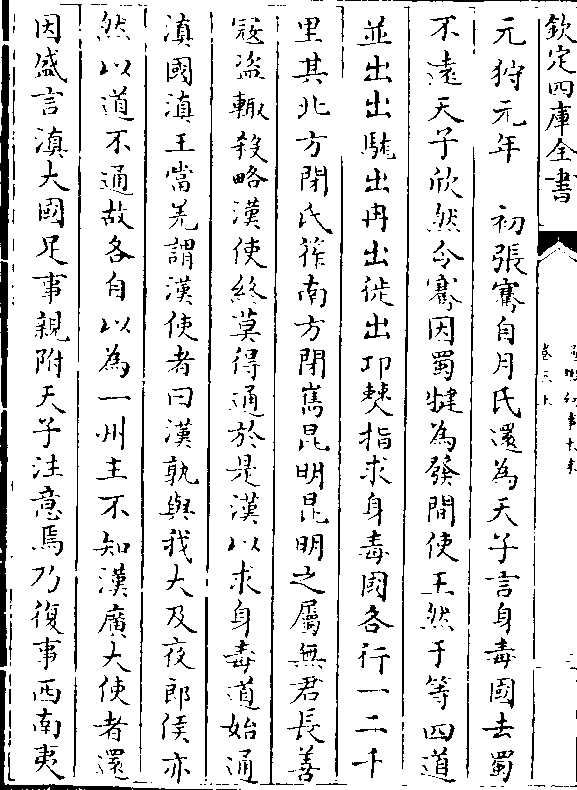 欽定四庫全書
元狩元年　初張騫自月氏還為天子言身毒國去蜀
不遠天子欣然令騫因蜀犍為發間使王然于等四道
並出出駹出冉出徙出邛僰指求身毒國各行一二千
里其北方閉氐筰南方閉嶲昆明昆明之屬無君長善
寇盜輒殺略漢使終莫得通於是漢以求身毒道始通
滇國滇王當羌謂漢使者曰漢孰與我大及夜郎侯亦
然以道不通故各自以為一州主不知漢廣大使者還
因盛言滇大國足事親附天子注意焉乃復事西南夷